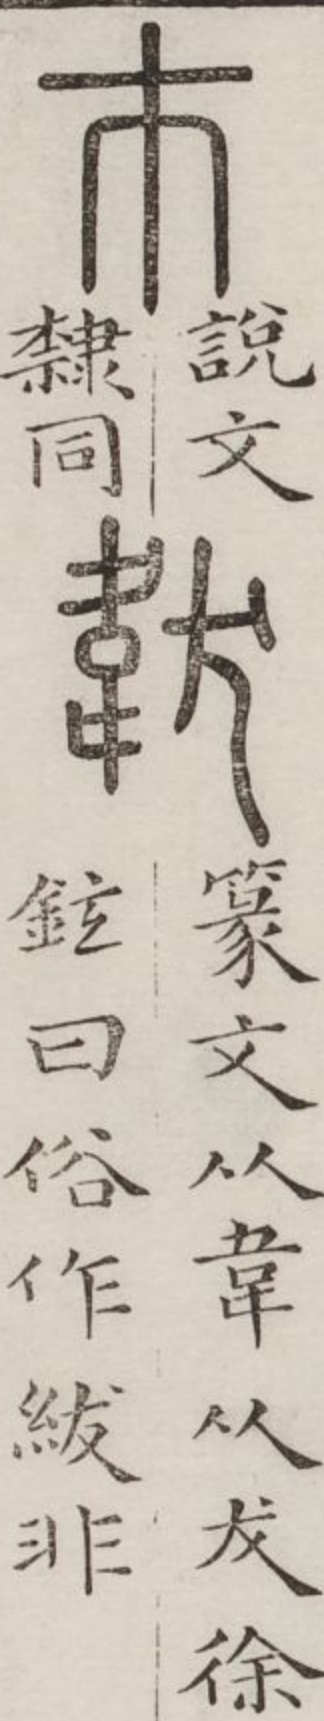 巿
說文
隸同
韍
篆文从韋从犮徐
鉉曰俗作紱非